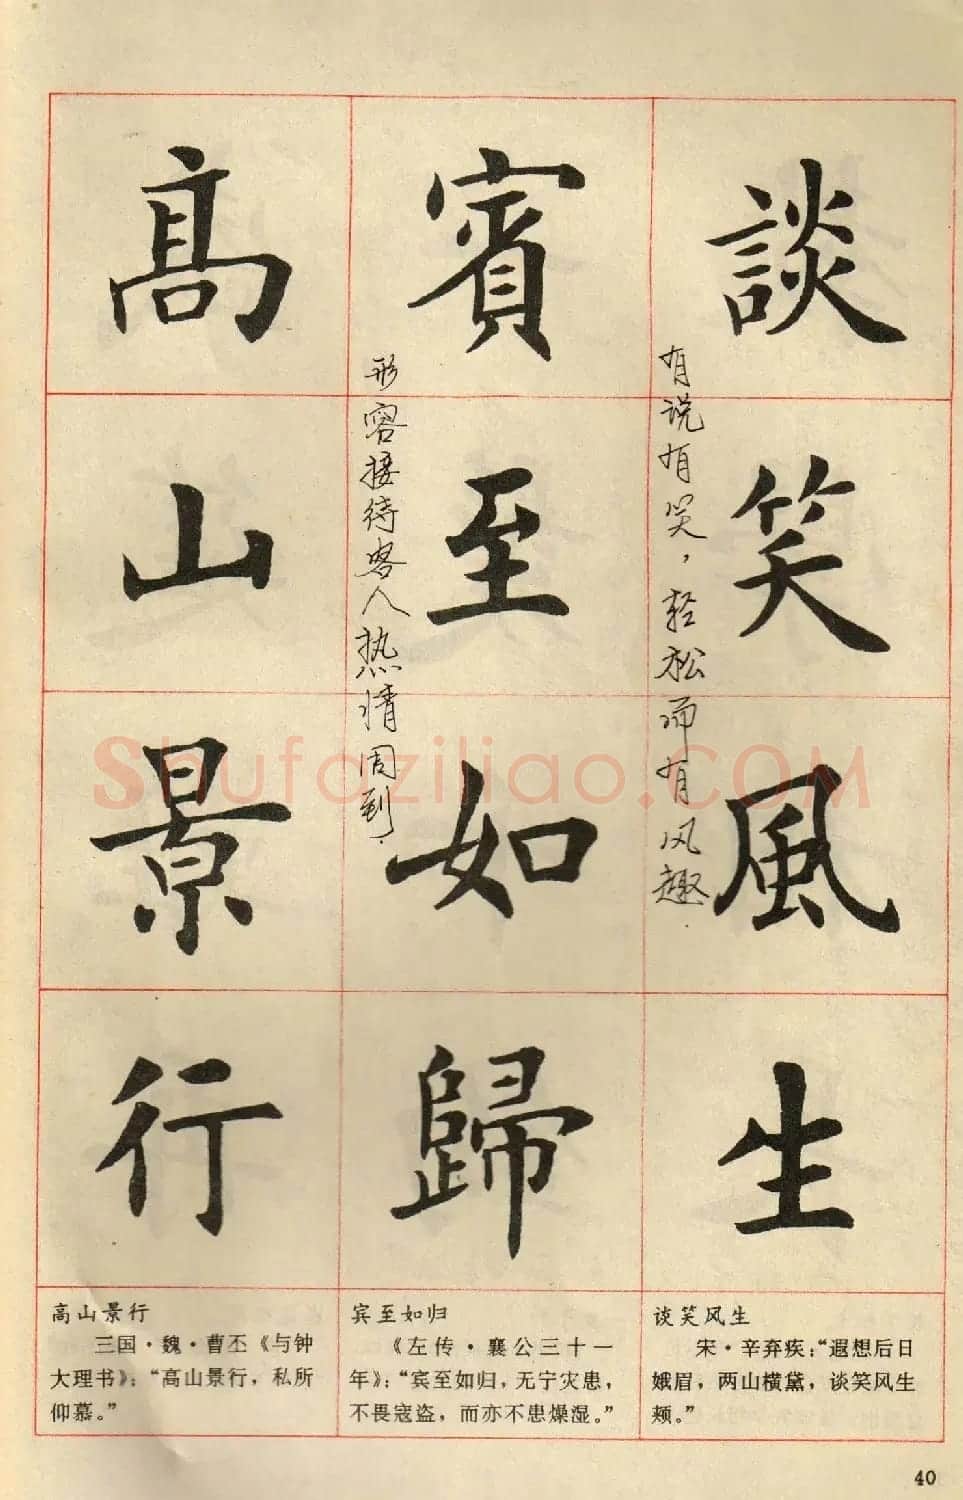 談笑風生
有说有笑，轻松而有风趣.
賓至如歸
形容接待客人热情周到.
高山景行
高山景行
三国·魏·曹丕《与钟
大理书》：“高山景行，私所
仰慕。”
宾至如归
《左传·襄公三十一
年》：“宾至如归，无宁灾患，
不畏寇盗，而亦不患燥湿。”
谈笑风生
宋·辛弃疾：“遐想后日
娥眉，两山横黛，谈笑风生
颊。”
40
Shufaziliao.COM